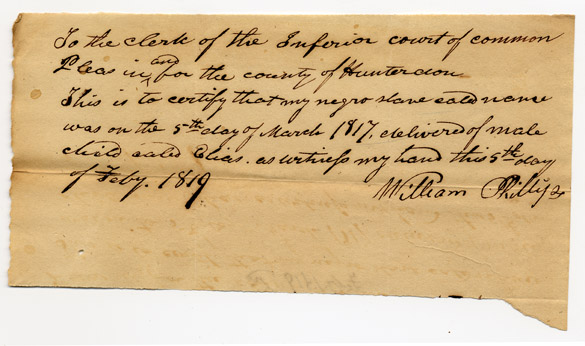 To the clerk of the Inferior court of common
Pleas in and for the county of Hunterdon
This is to certify that my negro slave cald name
was on the 5th day of March 1817. delivered of male
child cald Elias. as witness my hand this 5th day
of Feby. 1819
William Phillips